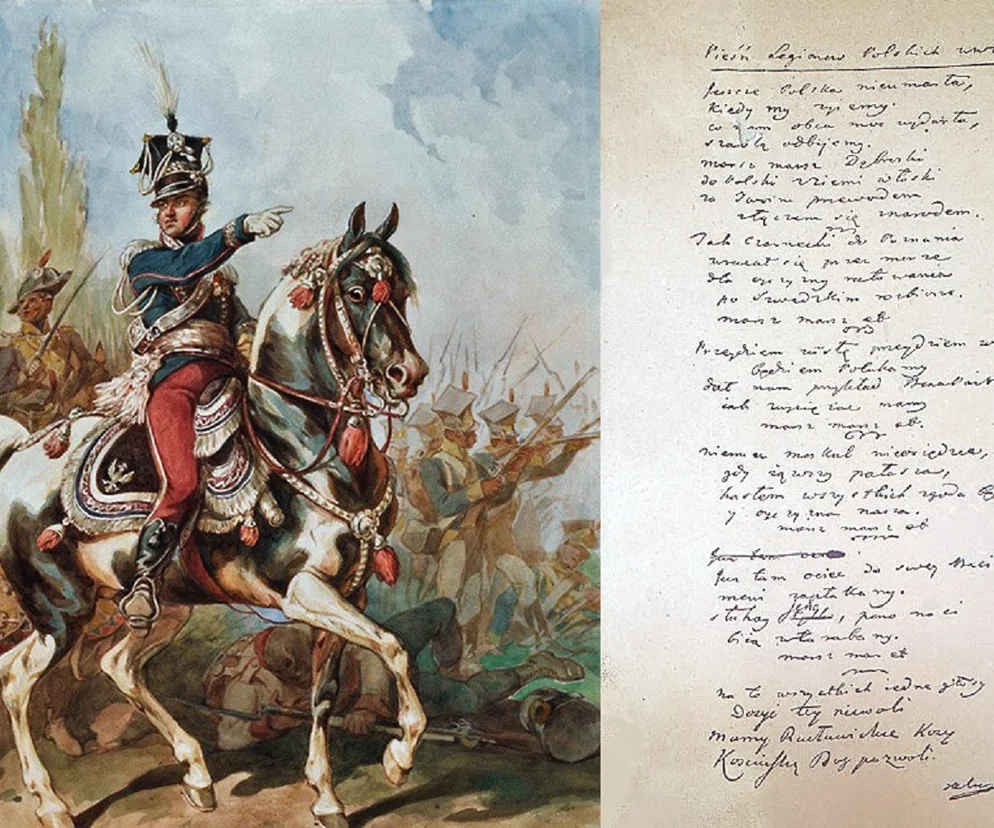 Pieśń Legionow Polskich
Jeszcze Polska nieumarła,
kiedy my żyiemy.
co nam obca moc wydarła,
szablą odbijemy.
marsz marsz Dąbrski
do Polski z ziemi włoski
za Twoim przewodem
złączem się z narodem.
Jak Czarnecki do Poznania
wracał się przez morze
dla oyczyzny ratowania
po Szwedzkim rozbiorze.
marsz marsz etc
Przeydziem Wisłę przeydziem
będziem Polakamy
dał nam przykład
iak zwyciężać mamy
marsz marsz etc.
niemiec moskal nieosiędzie,
gdy iąwszy pałasza,
hasłem wszystkich zgoda
y oyczyzna nasza.
marsz marsz etc
Już tam
Już tam ociec do swey Basi
mówi zapłakany.
słuchay, pono nasi
biią w tarabany.
marsz marsz etc
na to wszystkich iedne głosy
Dosyć tey niewoli
mamy Racławickie Kosy
Kosciuszkę Bog pozwoli.